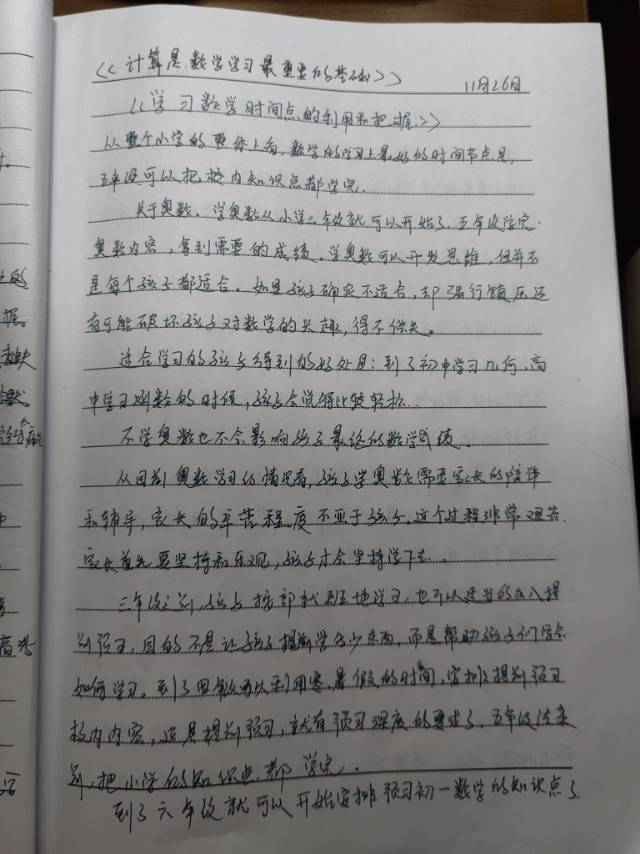 《计算是数学学习最重要的基础》
11月26日
《学习数学时间点的利用和把握》
从整个小学的整体上看,数学的学习上最好的时间节点是,
五年级可以把校内知识点都学完.
关于奥数、学奥数从小学二年级就可以开始了.五年级学完.
奥数内容,拿到需要的成绩.学奥数可以开发思维,但并不
是每个孩子都适合。如果孩子确实不适合,却强行镇压还
有可能破坏孩子对数学的兴趣,得不偿失。
适合学习的孩子得到的好处是:到了初中学习几何、高
中学习函数的时候,孩子会觉得比较轻松.
不学奥数也不会影响孩子最终的数学成绩.
从目前奥数学习的情况看,孩子学奥数需要家长的陪伴
和辅导,家长的辛苦程度不亚于孩子.这个过程非常艰苦.
家长首先要坚持和乐观,孩子才会坚持学下去.
三年级之前,孩子按部就班地学习,也可以适当的加入提
前预习,目的不是让孩子提前学多少东西,而是帮助孩子们学会
如何学习。到了四年级可以利用寒、暑假的时间,安排提前预习
校内内容,这是提前预习,就有预习深度的要求了.五年级结束
前,把小学的知识点都学完.
到了六年级就可以开始安排预习初一数学的知识点了